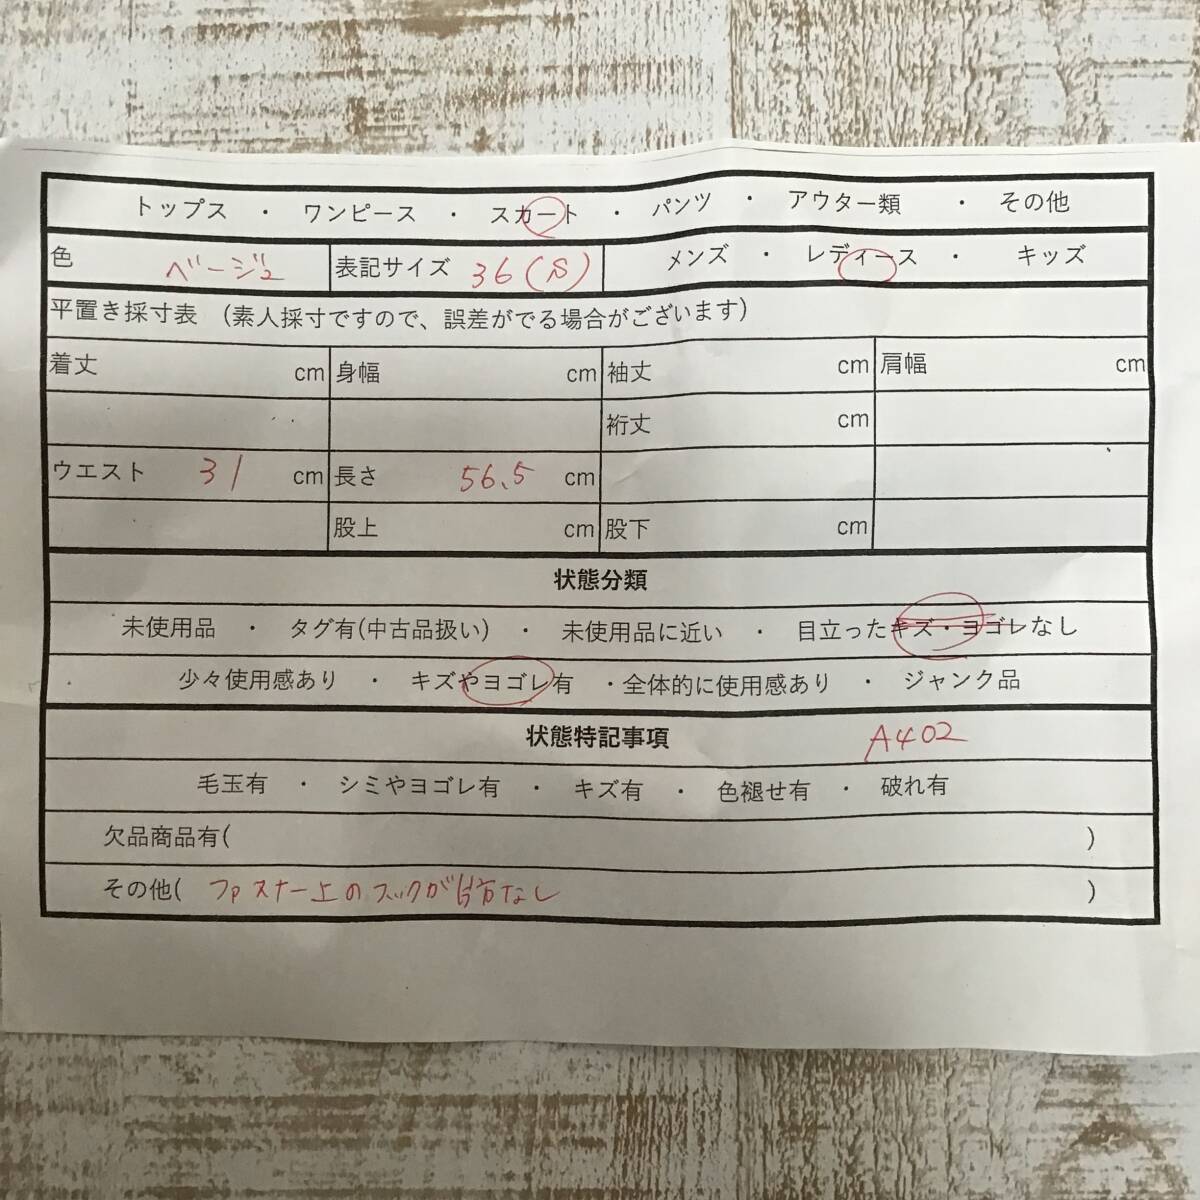 トップス ・ ワンピース ・ スカート ・ パンツ ・ アウター類 ・ その他
色 ベージュ 表記サイズ 36(S) メンズ ・ レディース ・ キッズ
平置き採寸表 (素人採寸ですので、誤差がでる場合がございます)
着丈 cm 身幅 cm 袖丈 cm 肩幅 cm
裄丈 cm
ウエスト 31 cm 長さ 56.5 cm
股上 cm 股下 cm
状態分類
未使用品 ・ タグ有(中古品扱い) ・ 未使用品に近い ・ 目立ったキズ・ヨゴレなし
少々使用感あり ・ キズやヨゴレ有 ・全体的に使用感あり ・ ジャンク品
状態特記事項 A402
毛玉有 ・ シミやヨゴレ有 ・ キズ有 ・ 色褪せ有 ・ 破れ有
欠品商品有( )
その他( ファスナー上のフックが片方なし )